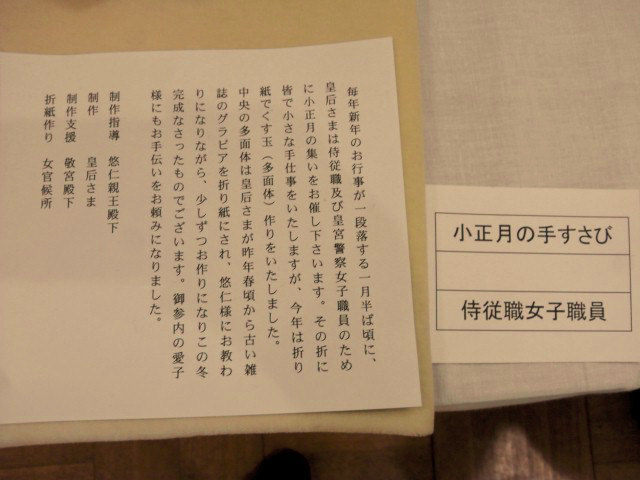 毎年新年のお行事が一段落する一月半ば頃に、
皇后さまは侍従職及び皇宮警察女子職員のため
に小正月の集いをお催し下さいます。その折に
皆で小さな手仕事をいたしますが、今年は折り
紙でくす玉（多面体）作りをいたしました。
中央の多面体は皇后さまが昨年春頃から古い雑
誌のグラビアを折り紙にされ、悠仁様にお教わ
りになりながら、少しずつお作りになりこの冬
完成なさったものでございます。御参内の愛子
様にもお手伝いをお頼みになりました。
制作指導　悠仁親王殿下
制作　皇后さま
制作支援　敬宮殿下
折紙作り　女官候所
小正月の手すさび
侍従職女子職員